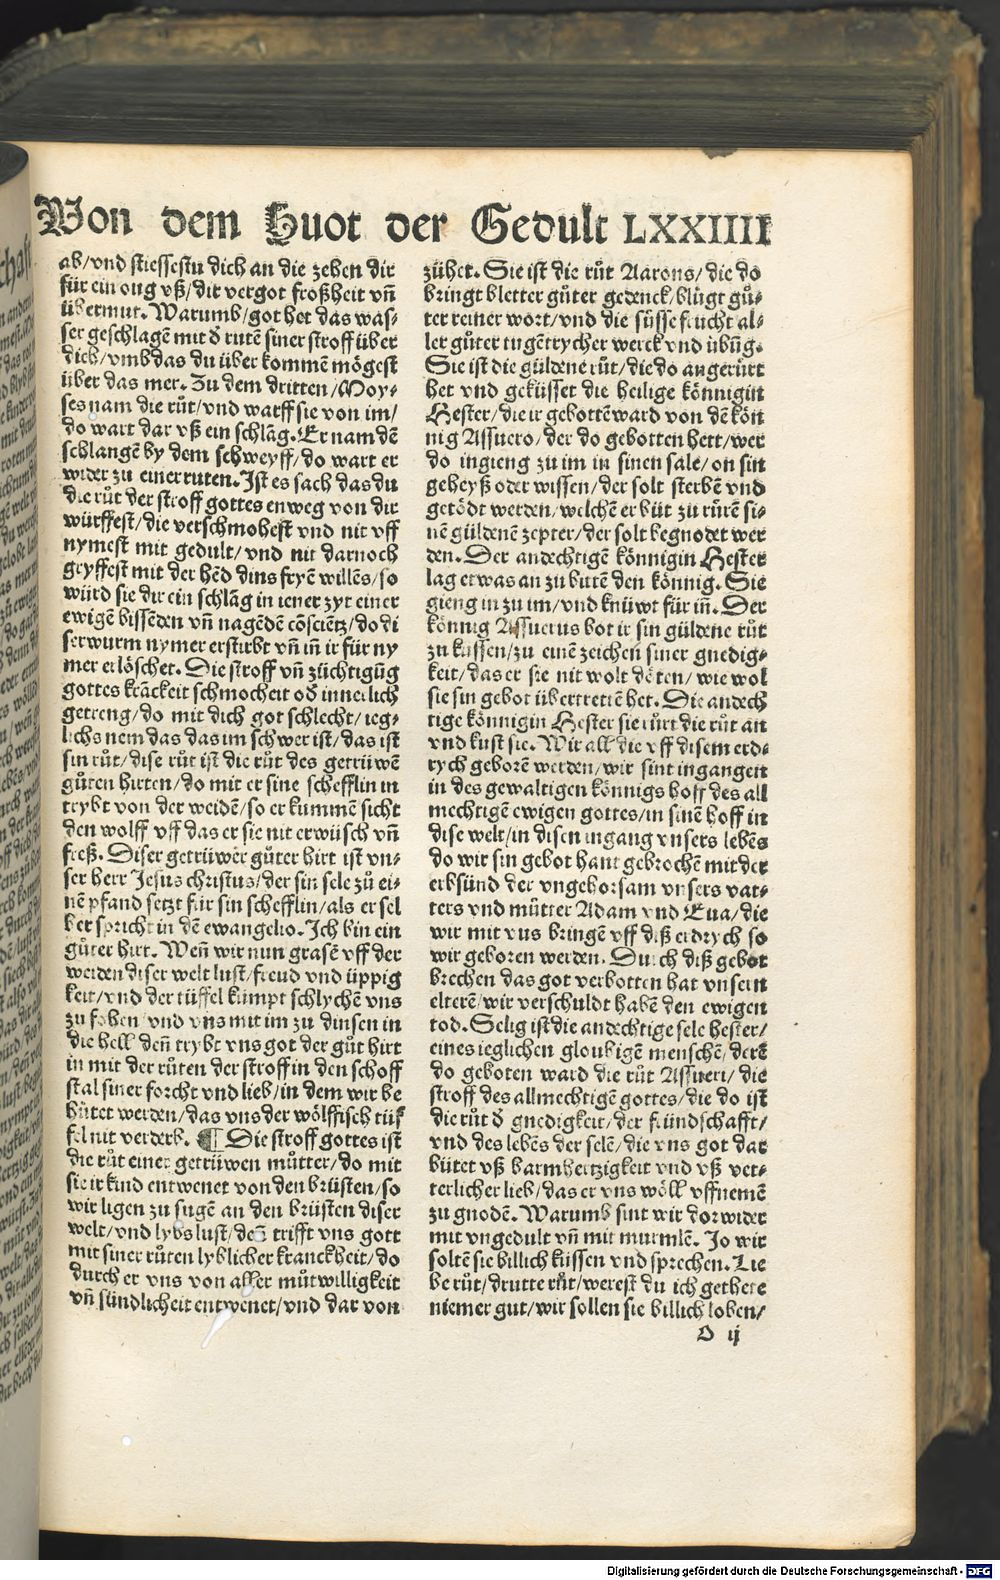 Von dem Huot der Gedult LXXIIII
ab/vnd stiessestu dich an die zehen dir
für ein oug vß/dir vergot froßheit vn̄
übermut. Warumb/got het das was-
ser geschlagē mit d̓ rutē siner stroff über
dich/vmb das du über kommē mögest
über das mer. Zu dem dritten/Moy-
ses nam die růt/vnd warff sie von im/
do wart dar vß ein schlāg. Er nam dē
schlangē by dem schweyff/do wart er
wider zu einer ruten. Ist es sach das du
die růt der stroff gottes enweg von dir
würffest/die verschmohest vnd nit vff
nymest mit gedult/vnd nit darnoch
gryffest mit der hēd dins fryē willēs/so
würd sie dir ein schlāg in iener zyt einer
ewigē bissēden vn̄ nagēdē cōsciētz/do di
ser wurm nymer erstirbt vn̄ in̄ ir für ny
mer erlöschet. Die stroff vn̄ züchtigūg
gottes krāckeit schmocheit od̓ innerlich
getreng/do mit dich got schlecht/ieg-
lichs nem das das im schwer ist/das ist
sin růt/dise růt ist die růt des getrüwē
gůten hirten/do mit er sine schefflin in
trybt von der weidē/so er kummē sicht
den wolff vff das er sie nit erwüsch vn̄
freß. Diser getrüwer gůter hirt ist vn-
ser herr Jesus christus/der sin sele zů ei-
nē pfand setzt für sin schefflin/als er sel
ber spricht in dē ewangelio. Ich bin ein
gůter hirt. Wen̄ wir nun grasē vff der
weiden diser welt lust/freud vnd üppig
keit/vnd der tüffel kumpt schlychē vns
zu fohen vnd vns mit im zu dinsen in
die hell den̄ trybt vns got der gůt hirt
in mit der růten der stroff in den schoff
stal siner forcht vnd lieb/in dem wir be
hütet werden/das vns der wölffisch tüf
fel nit verderb. ¶ Die stroff gottes ist
die růt einer getrüwen můtter/do mit
sie ir kind entwenet von den brüsten/so
wir ligen zu sugē an den brüsten diser
welt/vnd lybs lust/den̄ trifft vns gott
mit siner růten lyblicher kranckheit/do
durch er vns von aller můtwilligkeit
vn̄ sündlicheit entwenet/vnd dar von
zühet. Sie ist die růt Aarons/die do
bringt bletter gůter gedenck/blügt gů-
ter reiner wort/vnd die süsse frucht al-
ler gůter tugētrycher werck vnd übūg.
Sie ist die güldenē růt/die do angerürt
het vnd geküsset die heilige könnigin
Hester/die ir gebottē ward von dē kön
nig Assuero/der do gebotten hett/wer
do ingieng zu im in sinen sale/on sin
geheyß oder wissen/der solt sterbē vnd
getödt werden/welchē er büt zu rürē si-
nē güldenē zepter/der solt begnodet wer
den. Der andechtigē könnigin Hester
lag etwas an zu bitē den könnig. Sie
gieng in zu im/vnd knüwt für in̄. Der
könnig Assuerus bot ir sin güldene růt
zu küssen/zu einē zeichen siner gnedig-
keit/das er sie nit wolt döten/wie wol
sie sin gebot übertretē het. Die andech
tige könnigin Hester sie rürt die růt an
vnd kust sie. Wir all die vff disem erd-
rych geborē werden/wir sint ingangen
in des gewaltigen könnigs hoff des all
mechtigē ewigen gottes/in sinē hoff in
dise welt/in disen ingang vnsers lebēs
do wir sin gebot hant gebrochē mit der
erbsünd der vngehorsam vnsers vat-
ters vnd můtter Adam vnd Eua/die
wir mit vns bringē vff diß erdrych so
wir geboren werden. Durch diß gebot
brechen das got verbotten hat vnsern
elterē/wir verschuldt habē den ewigen
tod. Selig ist die andechtige sele hester/
eines ieglichen gloubigē menschē/derē
do geboten ward die růt Assueri/die
stroff des allmechtigē gottes/die do ist
die růt d̓ gnedigkeit/der fründschafft/
vnd des lebēs der selē/die vns got dar
bütet vß barmhertzigkeit vnd vß vet-
terlicher lieb/das er vns wöll vffnemē
zu gnodē. Warumb sint wir dorwider
mit vngedult vn̄ mit murmlē. Jo wir
soltē sie billich küssen vnd sprechen. Lie
be růt/drutte růt/werest du ich gethete
niemer gut/wir sollen sie billich loben/
O ij
Digitalisierung gefördert durch die Deutsche Forschungsgemeinschaft - DFG